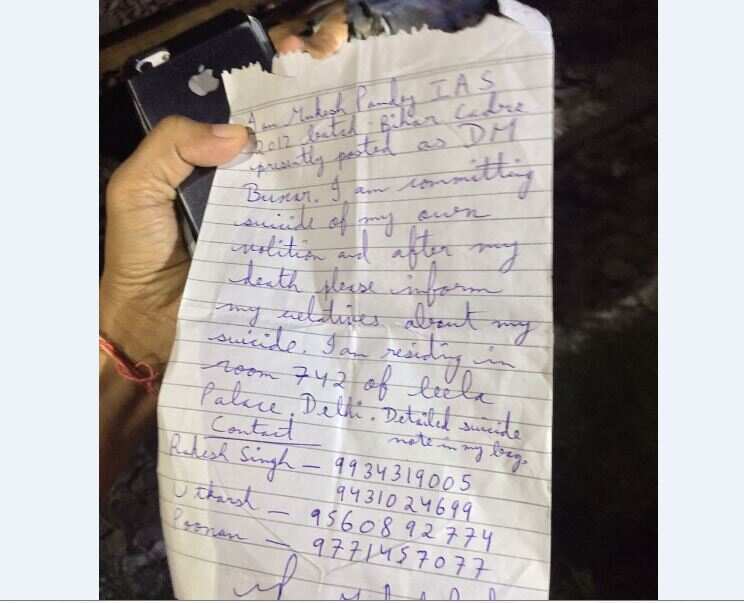 I am Mukesh Pandey IAS
2012 batch Bihar Cadre
presently posted as DM
Buxar. I am committing
suicide of my own
volition and after my
death please inform
my relatives about my
suicide. I am residing in
room 742 of leela
Palace, Delhi. Detailed suicide
note in my bag.
Contact
Rakesh Singh — 9934319005
9431024699
Utkarsh — 9560892774
Poonam — 9771457077